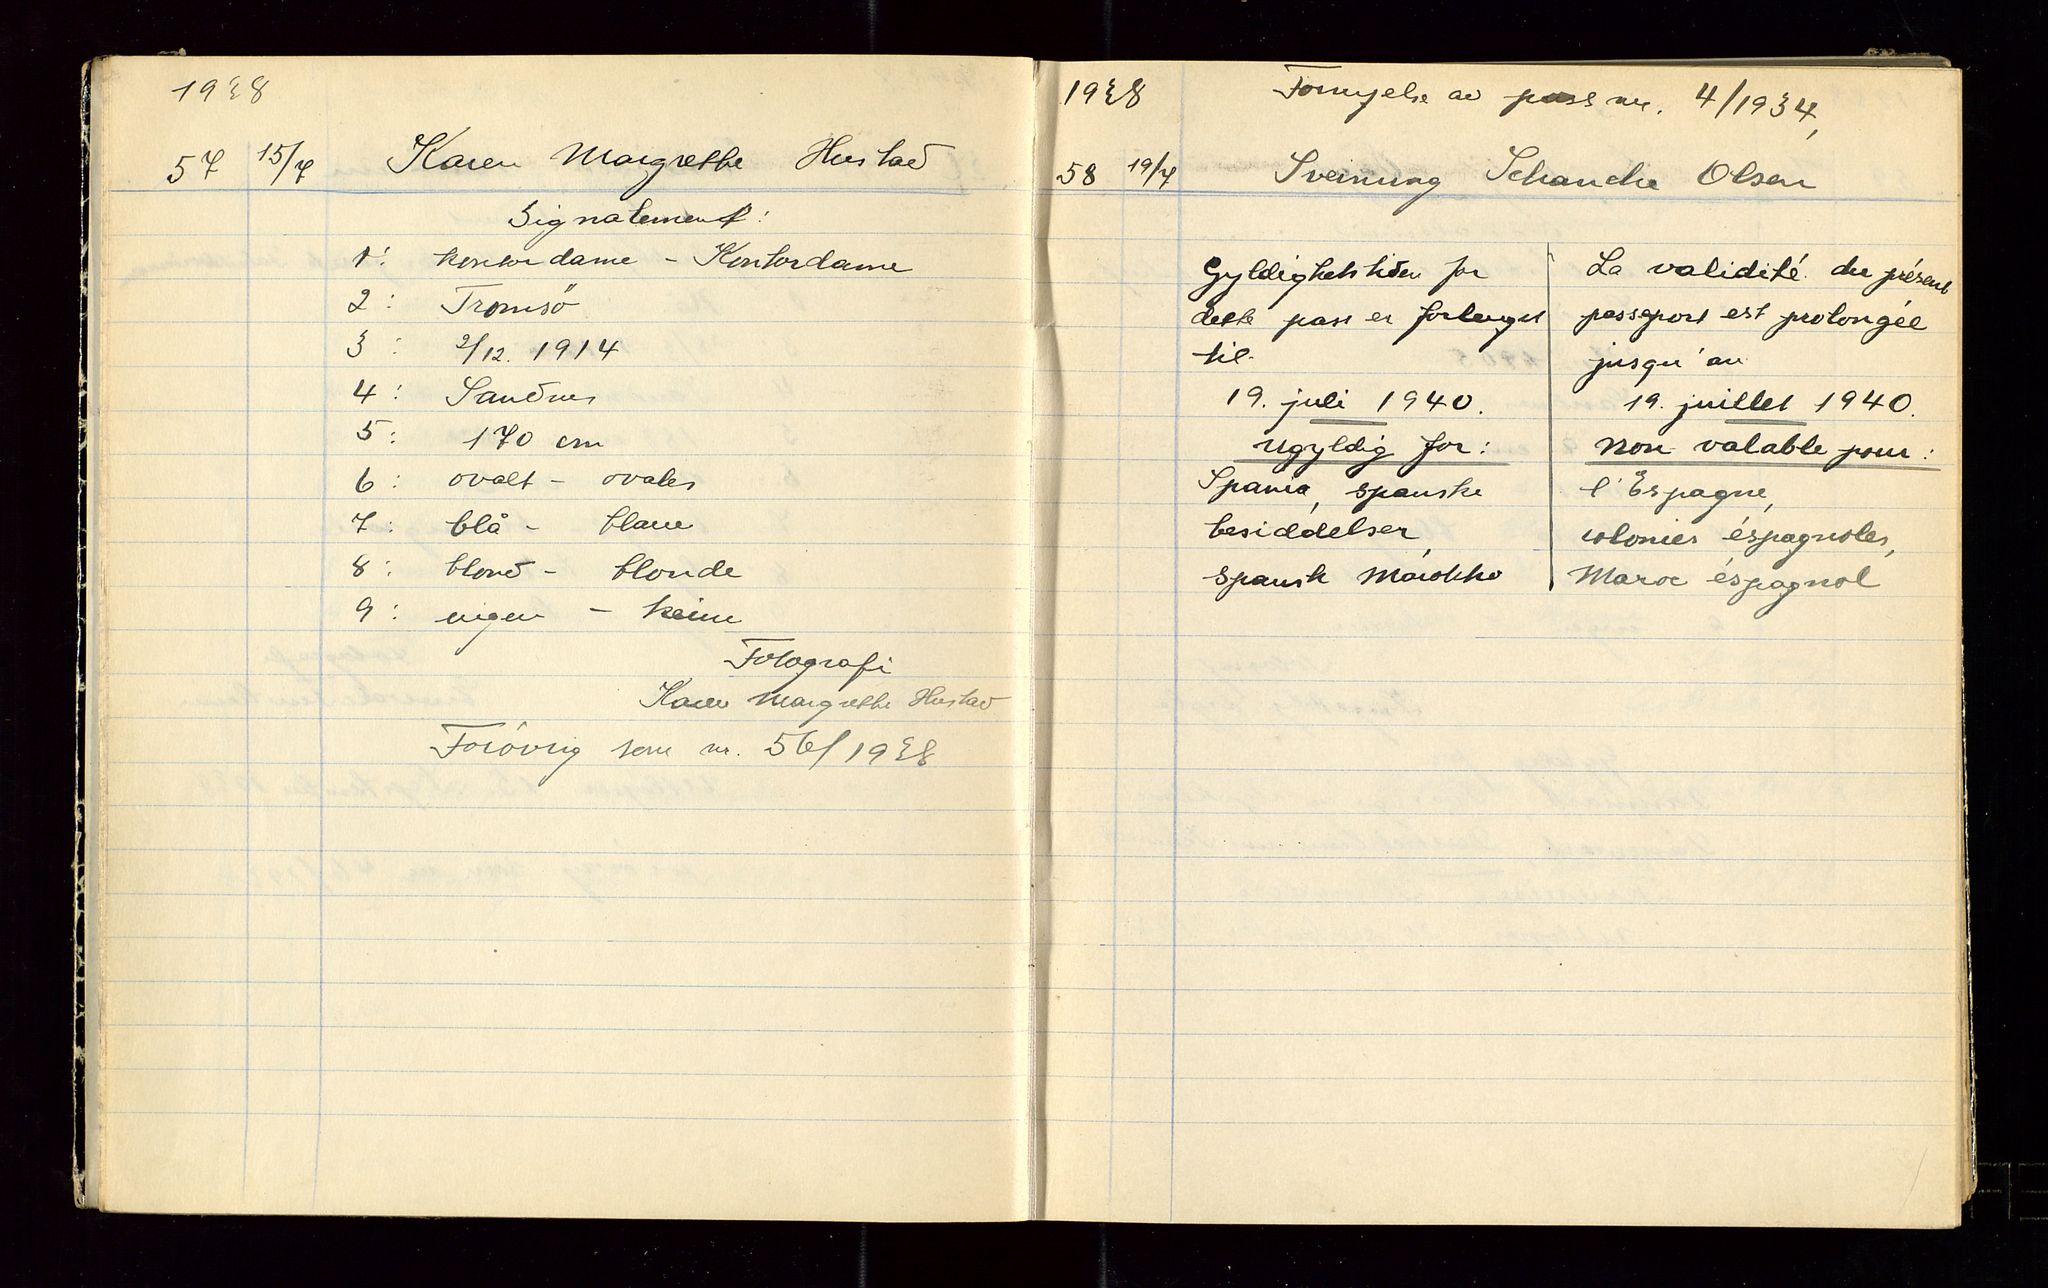 1938
57 15/7 Karen Margrethe Hustad
Signalement:
1: kontordame - Kontordame
2: Tromsö
3: 2/12. 1914
4: Sandnes
5: 170 cm
6: ovalt - ovales
7: blå - blaue
8: blond - blonde
9: ingen - keine
Fotografi
Karen Margrethe Hustad
Forövrig som nr. 56/1938
1938 Fornyelse av pass nr. 4/1934,
58 19/7 Sveinung Schanche Olsen
Gyldighetstiden for
dette pass er forlenget
til
19. juli 1940.
Ugyldig for:
Spania, spanske
besiddelser,
spansk Marokko
La validité du présent
passeport est prolongée
jusqu'au
19. juillet 1940.
Non valable pour:
l'Espagne,
colonies éspagnoles,
Maroc éspagnol